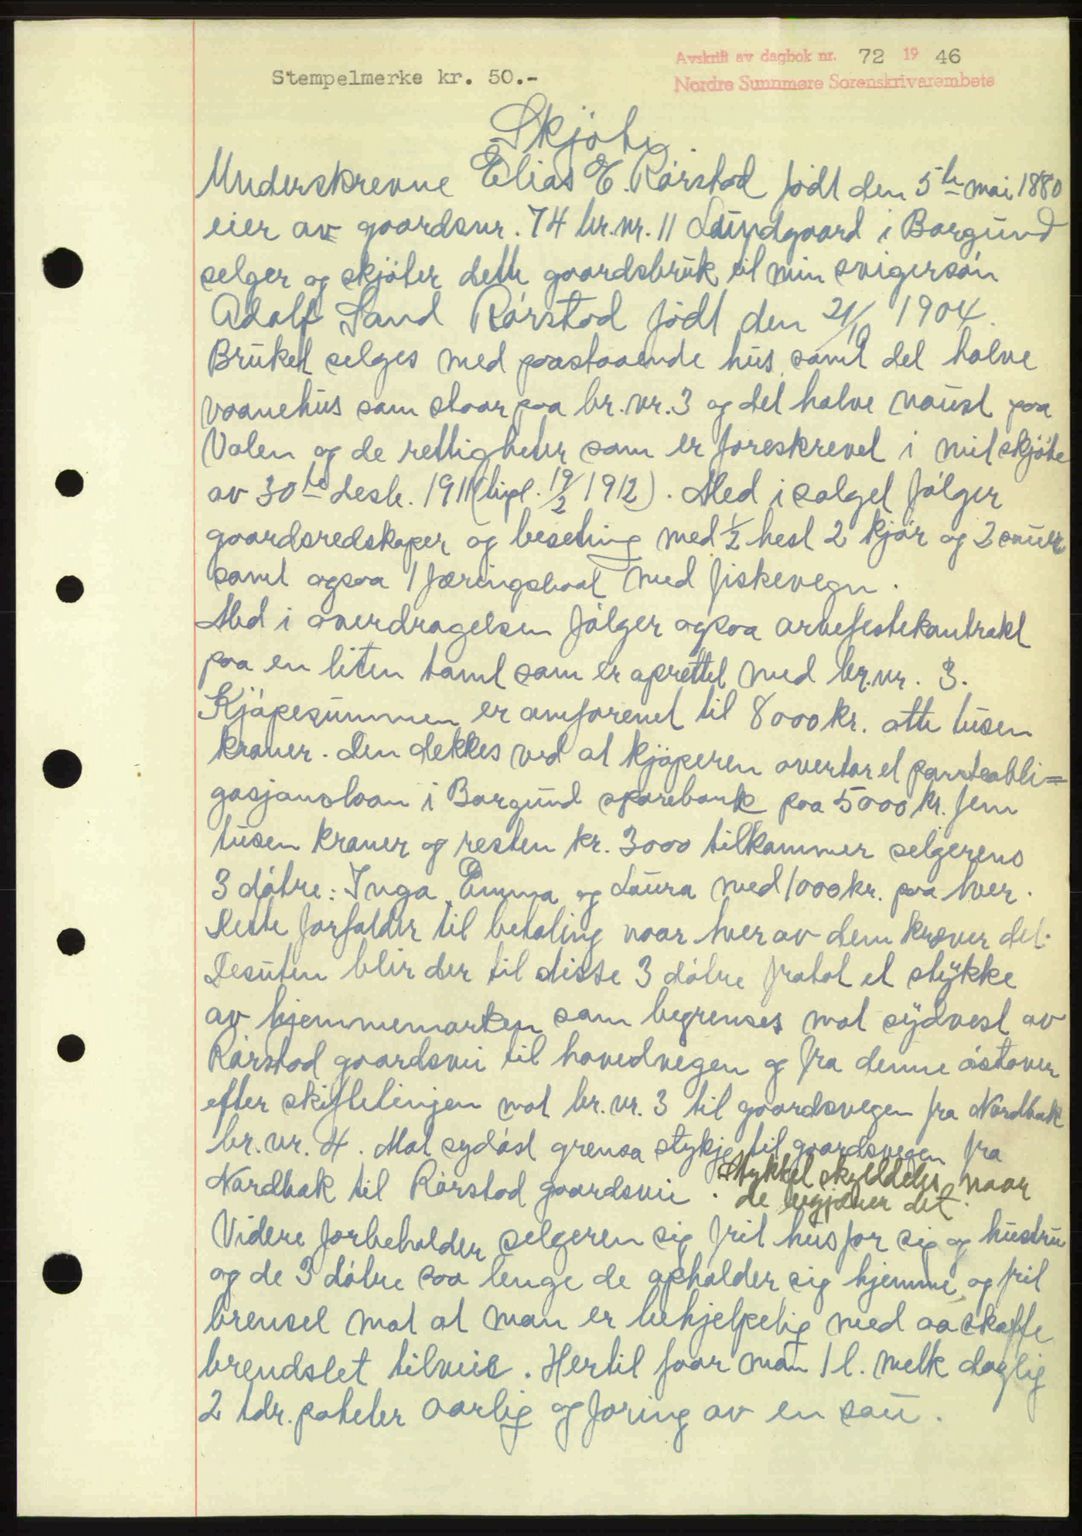 Avskrift av dagbok nr. 72 19 46
Stempelmerke kr. 50.-
Nordre Sunnmøre Sorenskrivarembete
Skjøte.
Underskrevne Elias E. Rørstad født den 5te mai 1880
eier av gaardsnr. 74 br.nr. 11 Lundgaard i Borgund
selger og skjøter dette gaardsbruk til min svigersøn
Adolf Sand Rørstad født den 21/10 1904.
Bruket selges med paastaaende hus samt det halve
vaanehus som staar paa br.nr. 3 og det halve naust paa
Valen og de rettigheter som er foreskrevet i mit skjøte
av 30te desb. 1911 (tinpl. 19/2 1912). Med i salget følger
gaardsredskaper og beseting med 1/2 hest 2 kjør og 2 sauer
samt ogsaa 1 færingsbaat med fiskevegn.
Med i overdragelsen følger ogsaa arvefestekontrakt
paa en liten tomt som er oprettet med br.nr. 3.
Kjøpesummen er omforenet til 8000 kr. otte tusen
kroner. Den dekkes ved at kjøperen overtar et panteobli=
gasjonslaan i Borgund sparebank paa 5000 kr. fem
tusen kroner og resten kr. 3000 tilkommer selgerens
3 døtre: Inga, Emma og Laura med 1000 kr. paa hver.
Dette forfalder til betaling naar hver av dem kræver det.
Desuten blir der til disse 3 døtre fratat et stykke
av hjemmemarken som begrenses mot sydvest av
Rørstad gaardsvei til hovedvegen og fra denne østover
efter skiftelinjen mot br.nr. 3 til gaardsvegen fra Nordbak
br.nr. 4. Mot sydøst grensa stykje til gaardsvegen fra
Nordbak til Rørstad gaardsvei. Stykket skylddeles naar
de begjærer det.
Videre forbeholder selgeren sig frit hus for sig og hustru
og de 3 døtre saa lenge de opholder sig hjemme, og frit
brensel mot at man er behjelpelig med aa skaffe
brendslet tilveie. Hertil faar man 1 l. melk daglig
2 tdr. poteter aarlig og foring av en sau.